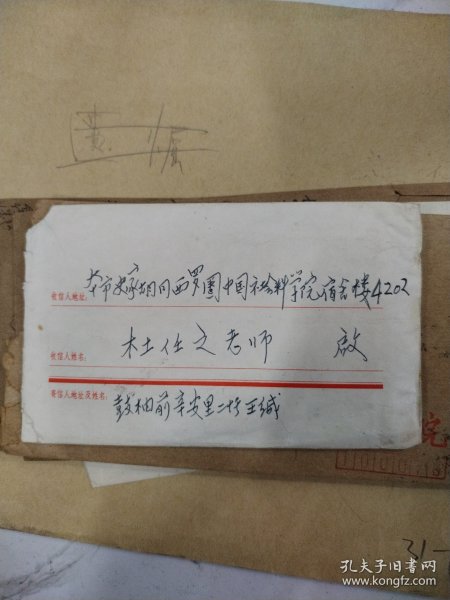 遗嘱
收信人地址: 本市史家胡同西罗圈中国社会科学院宿舍楼4202
收信人姓名: 杜任之老师 啟
寄信人地址及姓名: 鼓楼前辛安里二十号王緘
院
31-
孔夫子旧书网
www.kongfz.com